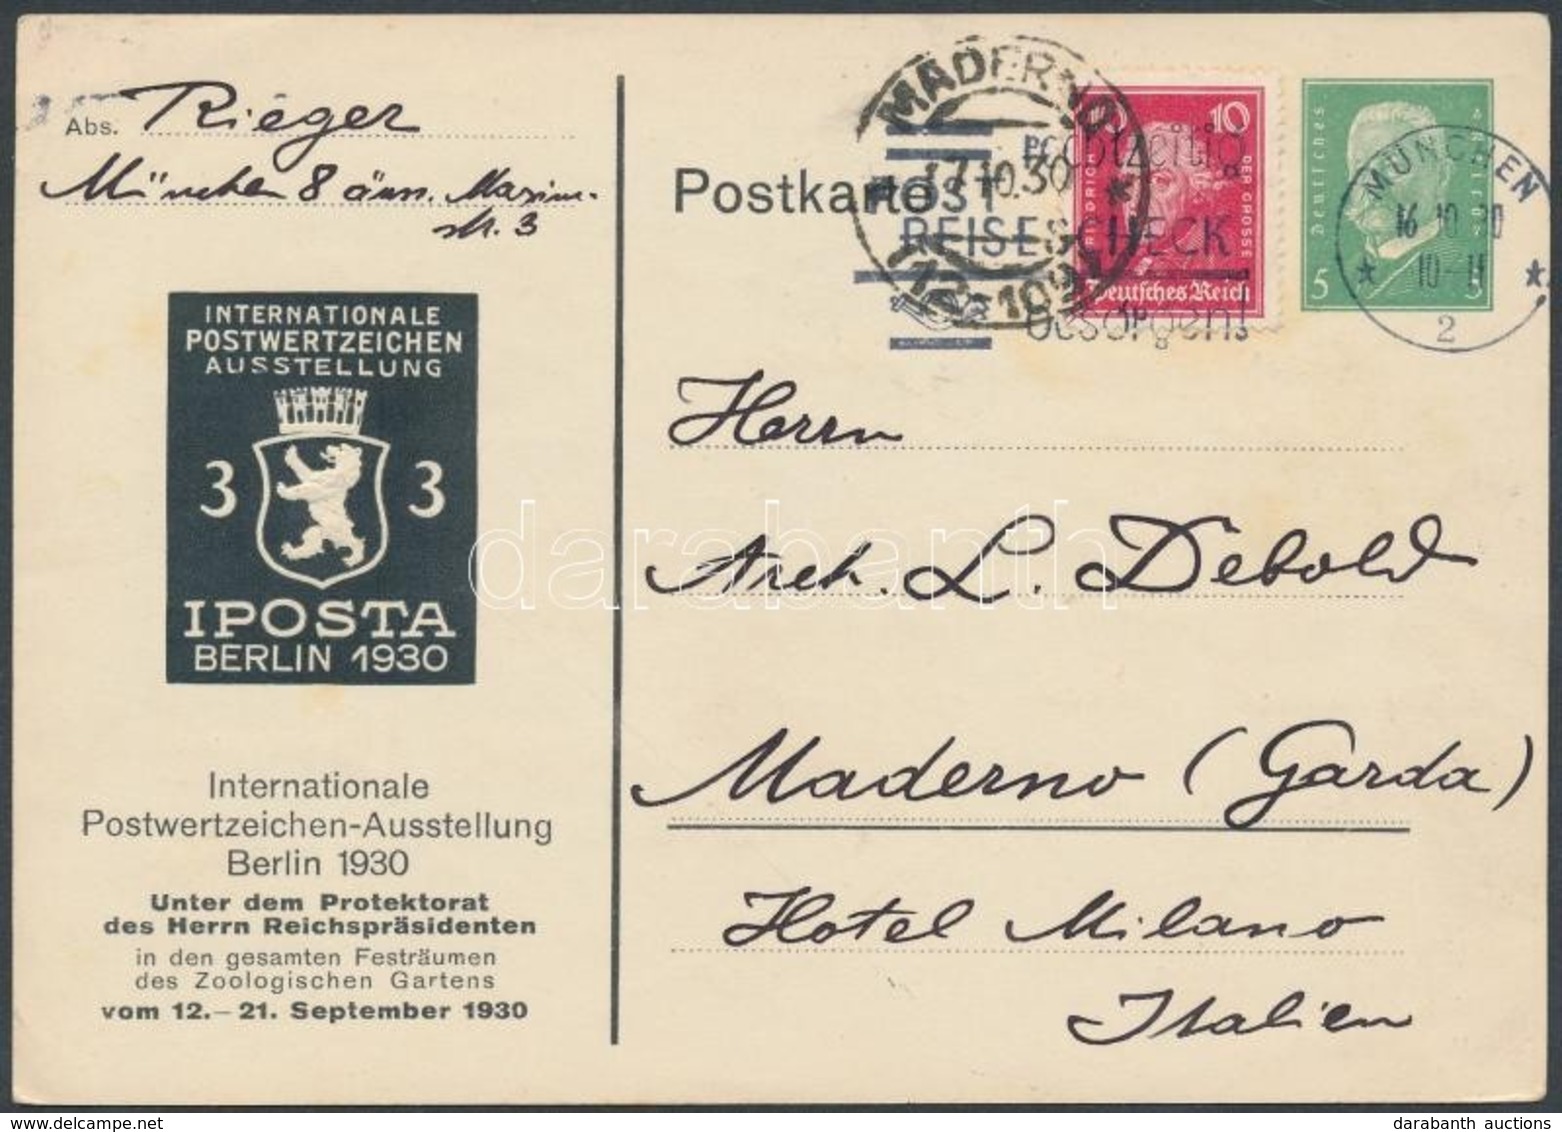 Abs. Rieger
München 8 äuss. Maxim-
str. 3
INTERNATIONALE
POSTWERTZEICHEN
AUSSTELLUNG
3 3
IPOSTA
BERLIN 1930
Internationale
Postwertzeichen-Ausstellung
Berlin 1930
Unter dem Protektorat
des Herrn Reichspräsidenten
in den gesamten Festräumen
des Zoologischen Gartens
vom 12.–21. September 1930
Postkarte
MADERNO
17.10.30
Post
REISESCHECK
besorgen!
10 10
FRIEDRICH DER GROSSE
Deutsches Reich
Deutsches Reich
5 5
MÜNCHEN
16 10 30
10-11
2
Herrn
Arch. L. Debold
Maderno (Garda)
Hotel Milano
Italien
darabanth
darabanth auctions